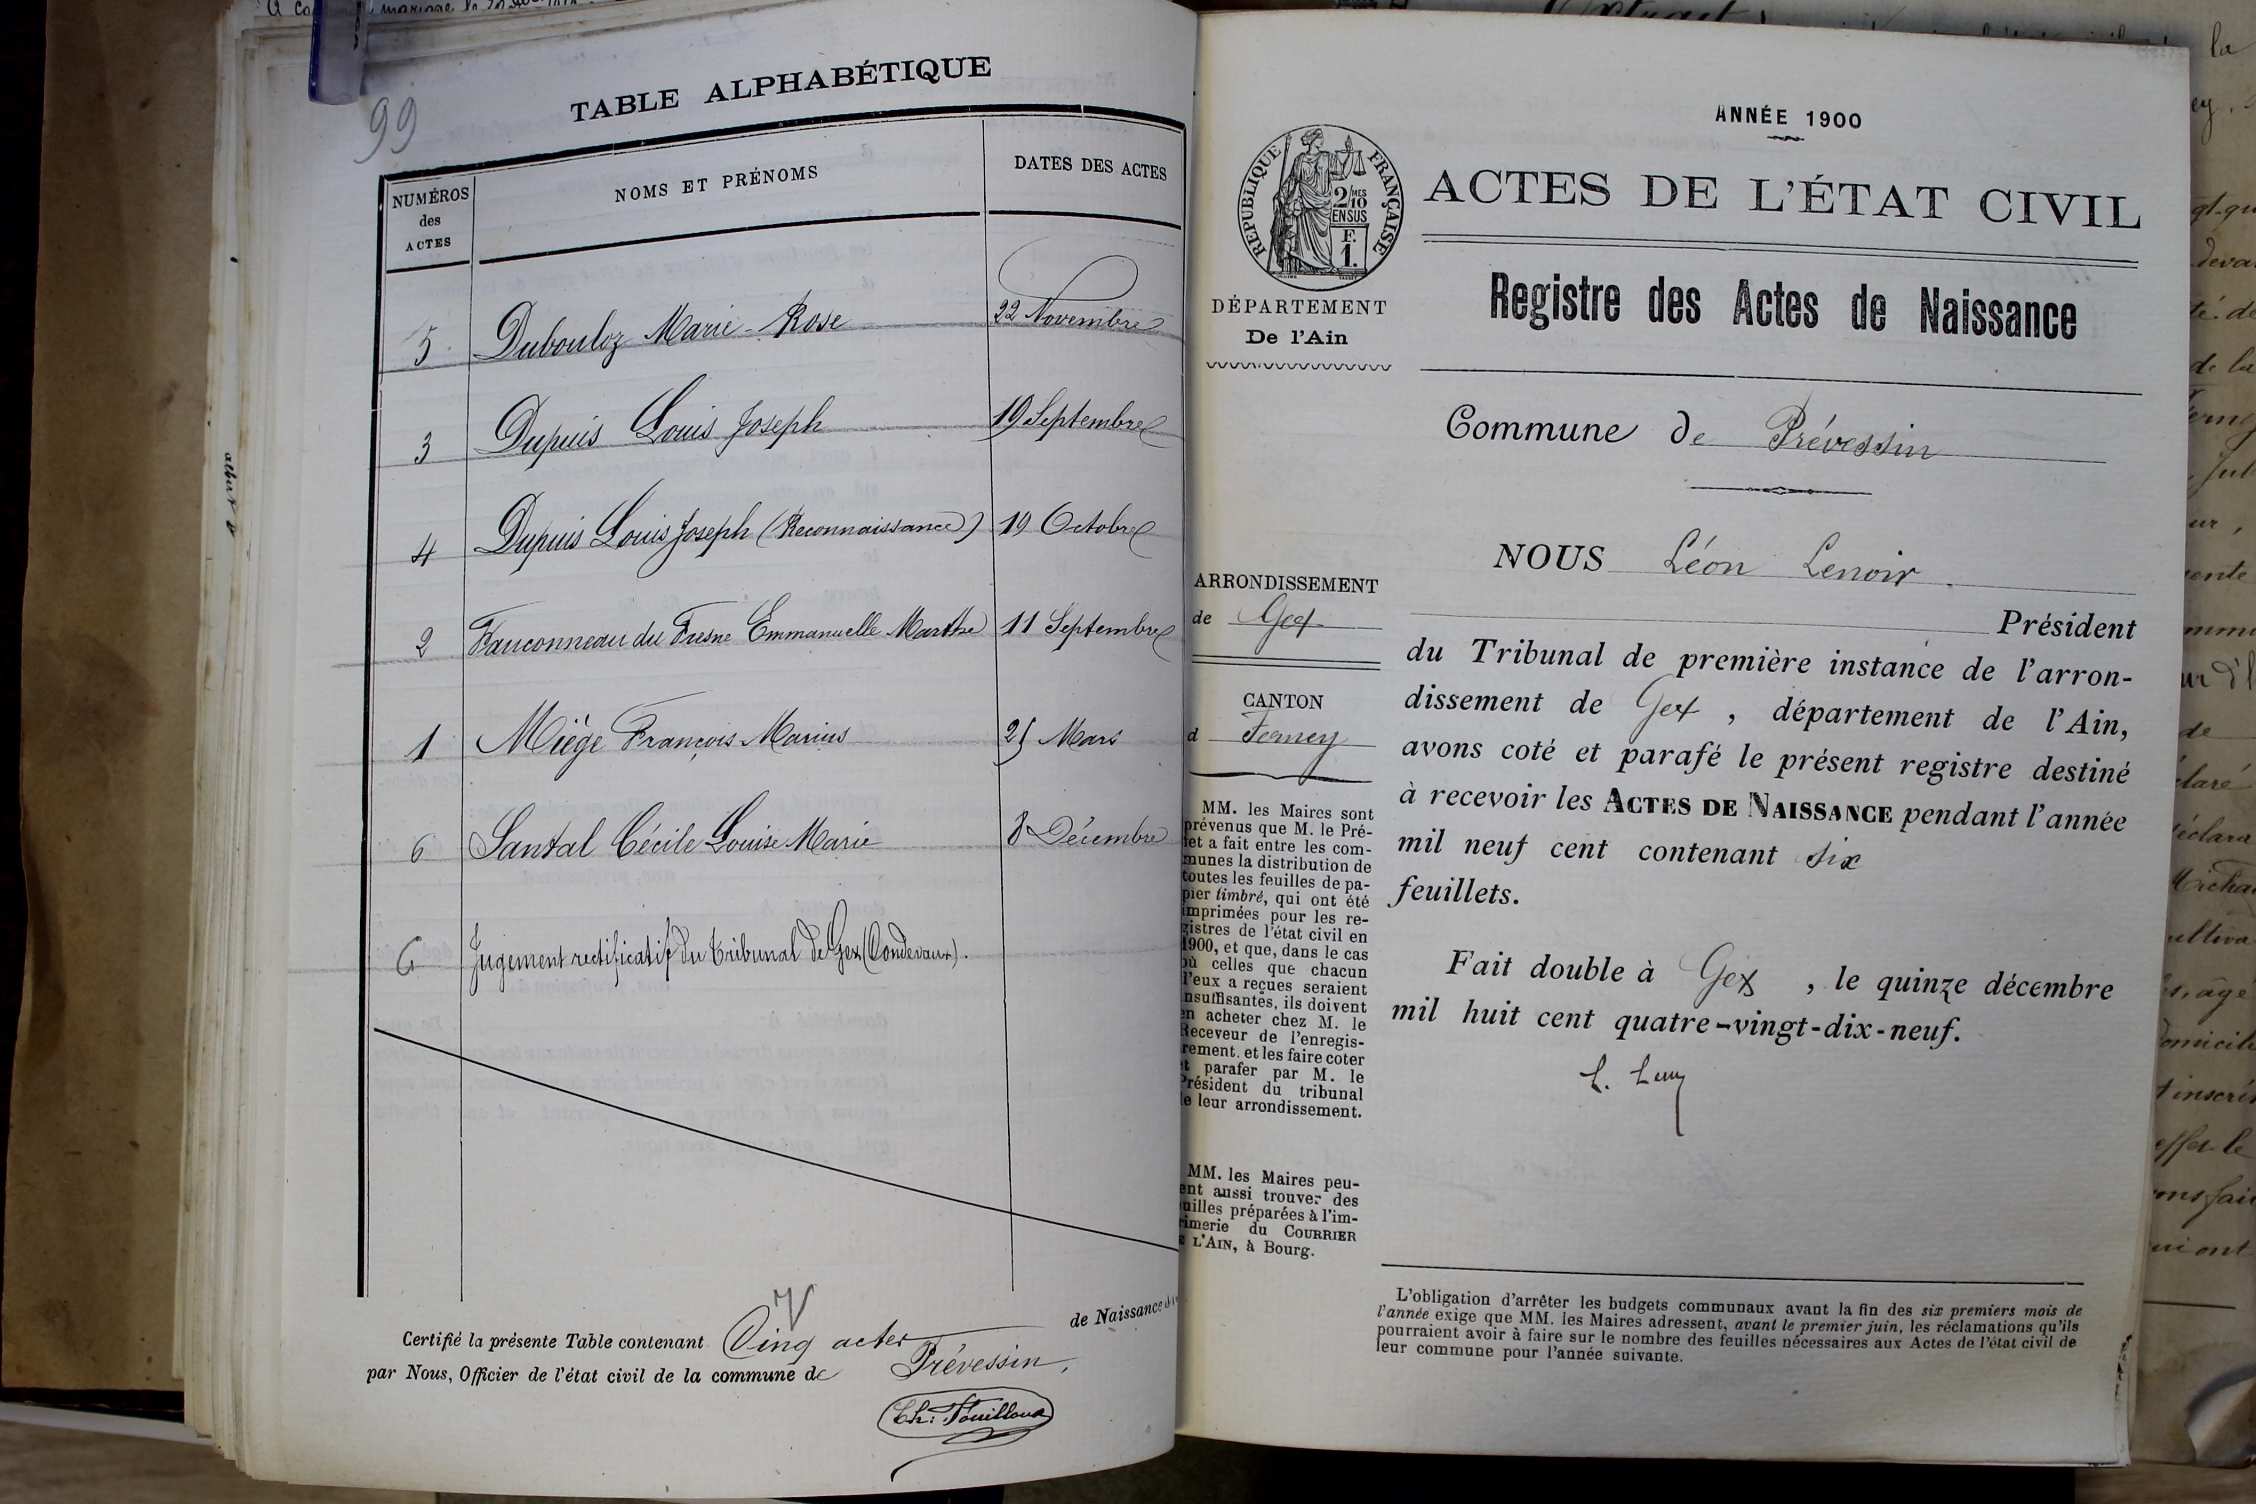 99
TABLE ALPHABÉTIQUE
NUMÉROS
des
ACTES
NOMS ET PRÉNOMS
DATES DES ACTES
5 Dubouloz Marie-Rose 22 Novembre
3 Dupuis Louis Joseph 19 Septembre
4 Dupuis Louis Joseph (Reconnaissance) 19 Octobre
2 Fauconneau du Fresne Emmanuelle Marthe 11 Septembre
1 Miège François Marius 25 Mars
6 Santal Cécile Louise Marie 8 Décembre
6 Jugement rectificatif du tribunal de Gex (Condevaux).
Certifié la présente Table contenant Cinq actes de Naissance
par Nous, Officier de l'état civil de la commune de Prévessin,
Ch: Fouilloux
ANNÉE 1900
RÉPUBLIQUE FRANÇAISE
2/10 MES
EN SUS
F.
1.
ACTES DE L'ÉTAT CIVIL
DÉPARTEMENT
De l'Ain
Registre des Actes de Naissance
Commune de Prévessin
ARRONDISSEMENT
de Gex
CANTON
d Ferney
MM. les Maires sont
prévenus que M. le Pré-
fet a fait entre les com-
munes la distribution de
toutes les feuilles de pa-
pier timbré, qui ont été
imprimées pour les re-
gistres de l'état civil en
1900, et que, dans le cas
où celles que chacun
d'eux a reçues seraient
insuffisantes, ils doivent
en acheter chez M. le
Receveur de l'enregis-
trement, et les faire coter
et parafer par M. le
Président du tribunal
de leur arrondissement.
MM. les Maires peu-
vent aussi trouver des
feuilles préparées à l'im-
primerie du COURRIER
DE L'AIN, à Bourg.
NOUS Léon Lenoir
Président
du Tribunal de première instance de l'arron-
dissement de Gex, département de l'Ain,
avons coté et parafé le présent registre destiné
à recevoir les ACTES DE NAISSANCE pendant l'année
mil neuf cent contenant six
feuillets.
Fait double à Gex, le quinze décembre
mil huit cent quatre-vingt-dix-neuf.
L'obligation d'arrêter les budgets communaux avant la fin des six premiers mois de
l'année exige que MM. les Maires adressent, avant le premier juin, les réclamations qu'ils
pourraient avoir à faire sur le nombre des feuilles nécessaires aux Actes de l'état civil de
leur commune pour l'année suivante.